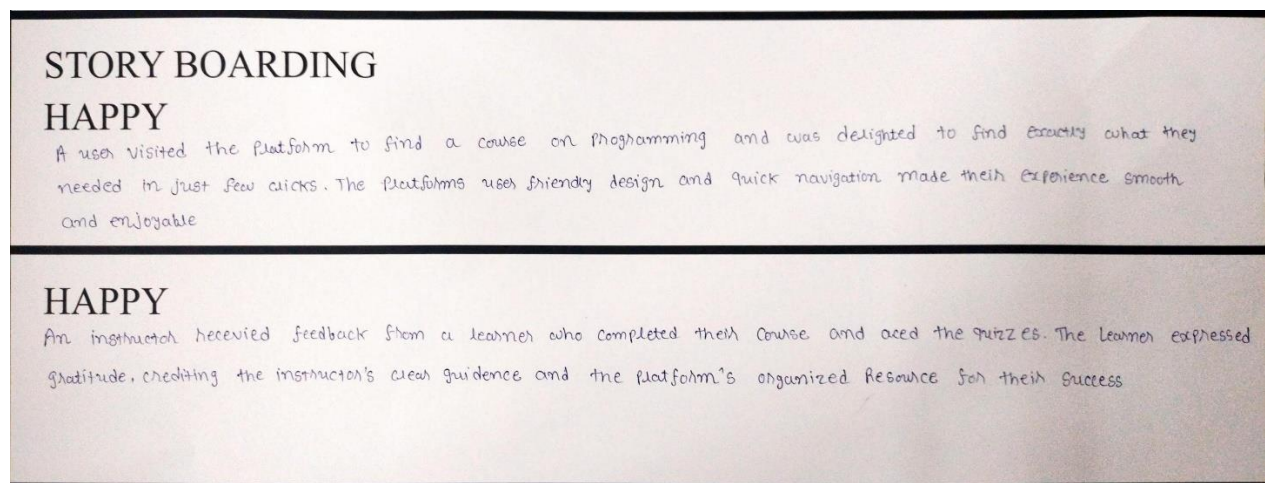 STORY BOARDING
HAPPY
A user visited the platform to find a course on programming and was delighted to find exactly what they
needed in just few clicks. The platforms user friendly design and quick navigation made their experience smooth
and enjoyable
HAPPY
An instructor recevied feedback from a learner who completed their course and aced the quizzes. The learner expressed
gratitude, crediting the instructor's clear guidence and the platform's organized Resource for their success